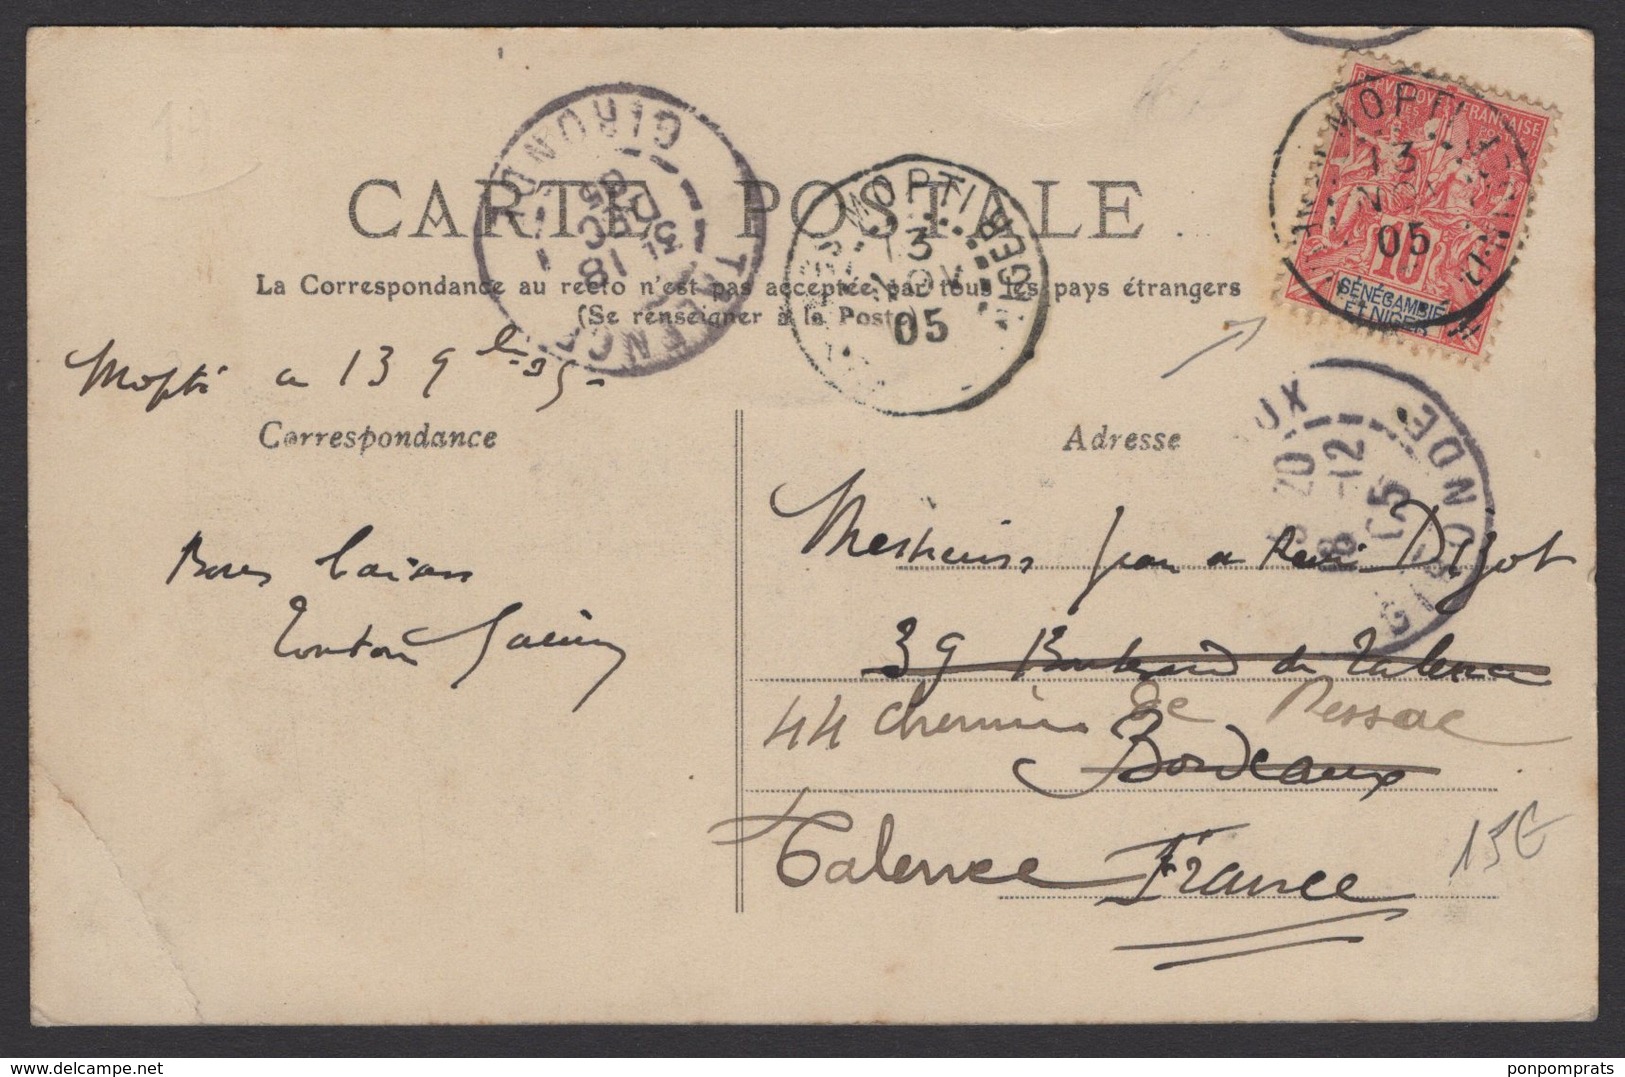 CARTE POSTALE
La Correspondance au recto n'est pas acceptée par tous les pays étrangers
(Se renseigner à la Poste)
GIRONDE
TALENCE
18 DEC 05
MOPTI
NIGER
13
NOV
05
MOPTI
13
NOV
05
10
SÉNÉGAMBIE
ET NIGER
Mopti a 13 9bre 05
Correspondance
Adresse
GIRONDE
Bons baisers
Tonton
Messieurs Jean & René Dijot
39 Boulevard de Talence
44 chemin de Pessac
Bordeaux
Talence France
15€
delcampe.net
ponpomprats